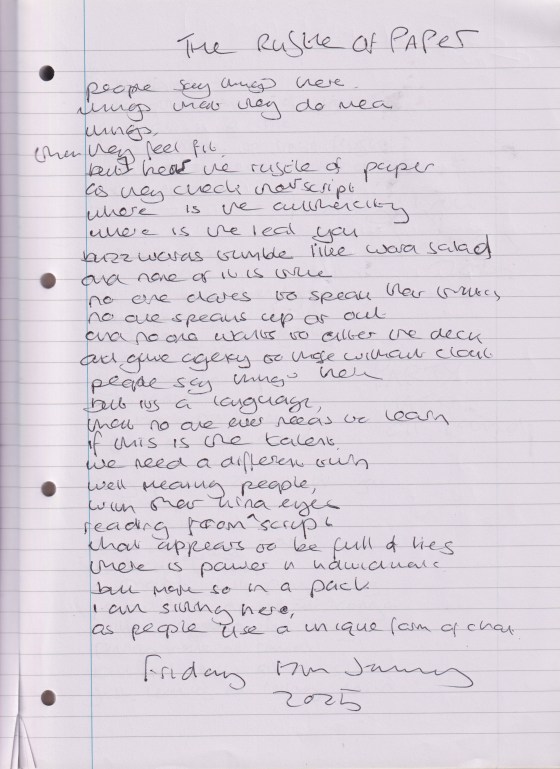 THE RUSTLE OF PAPER
people say things here.
things that they do mea
things,
when they feel fit.
but hear the rustle of paper
as they check thatscript
where is the authenticity
where is the real you
buzz words tumble like word salad
and none of it is true
no one dares to speak their truths
no one speaks up or out
and no one wants to alter the deck
and give agency to those without clout
people say things here
but its a language,
that no one ever needs to learn
if this is the talent.
we need a different
well meaning people,
with their kind eyes
reading from script
that appears to be full of lies
there is power in individuals
but more so in a pack
I am sitting here,
as people use a unique form of chat.
Friday 17th January
2025